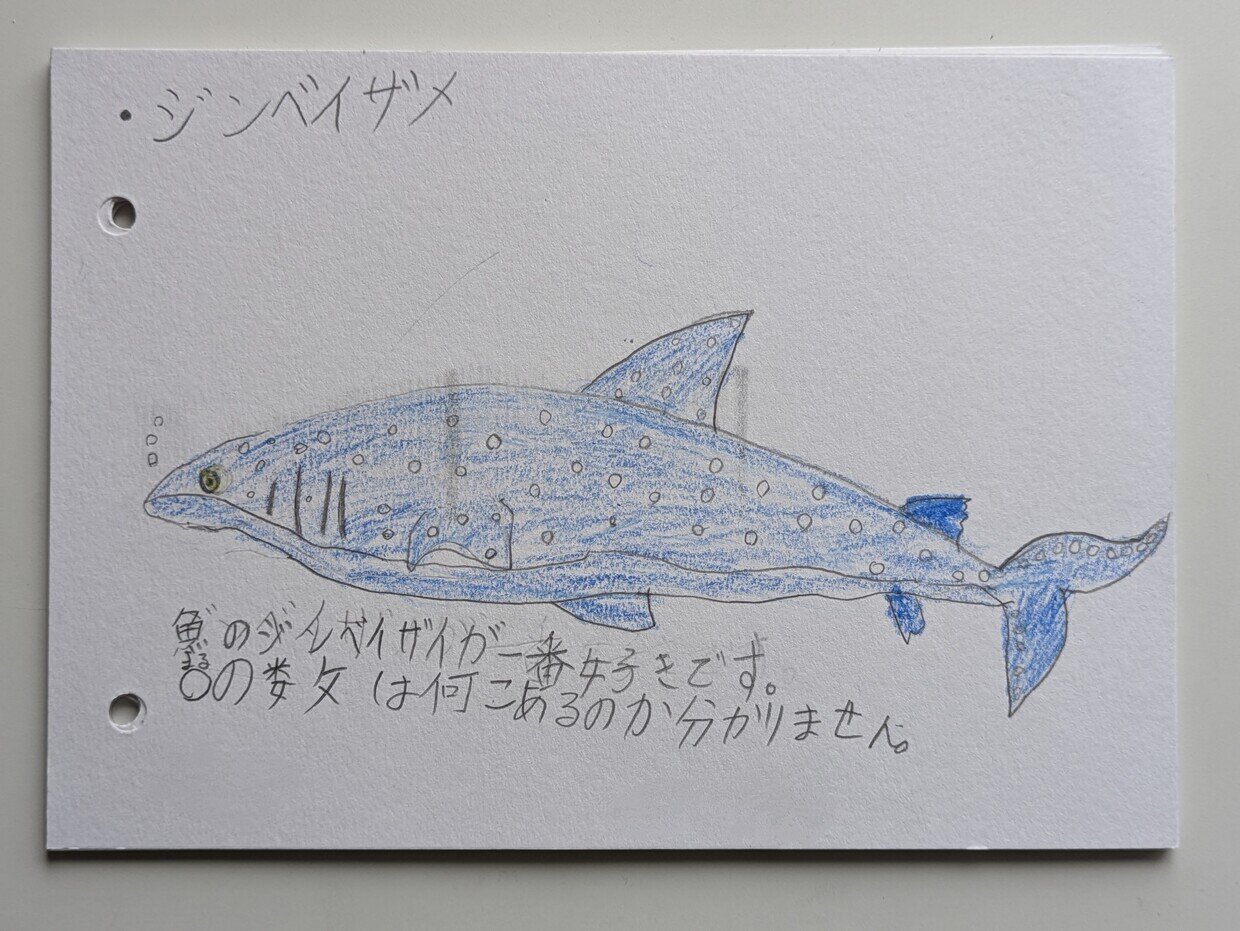 ・ジンベイザメ
魚のジンベイザイが一番好きです。
まる
○の娄攵は何こあるのか分かりません。